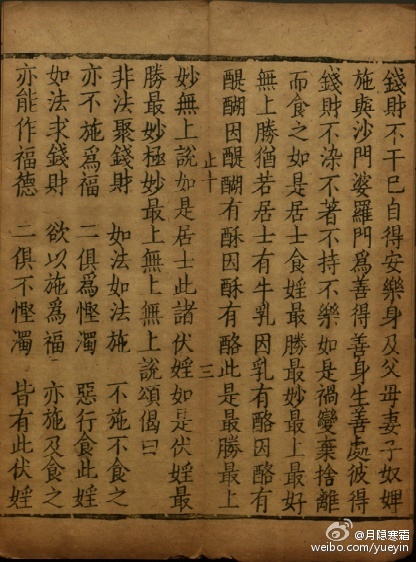 錢財不干已自得安樂身及父母妻子奴婢
施與沙門婆羅門爲善得善身生善處彼得
錢財不染不著不持不樂如是禍變棄捨離
而食之如是居士食婬最勝最妙最上最好
無上勝猶若居士有牛乳因乳有酪因酪有
醍醐因醍醐有酥因酥有酪此是最勝最上
止十 三
妙無上說如是居士此諸伏婬如是伏婬最
勝最妙極妙最上無上無上說頌偈曰
非法聚錢財 如法如法施 不施不食之
亦不施爲福 二俱爲慳濁 惡行食此婬
如法求錢財 欲以施爲福 亦施及食之
亦能作福德 二俱不慳濁 皆有此伏婬
@月隐寒霜
weibo.com/yueyin